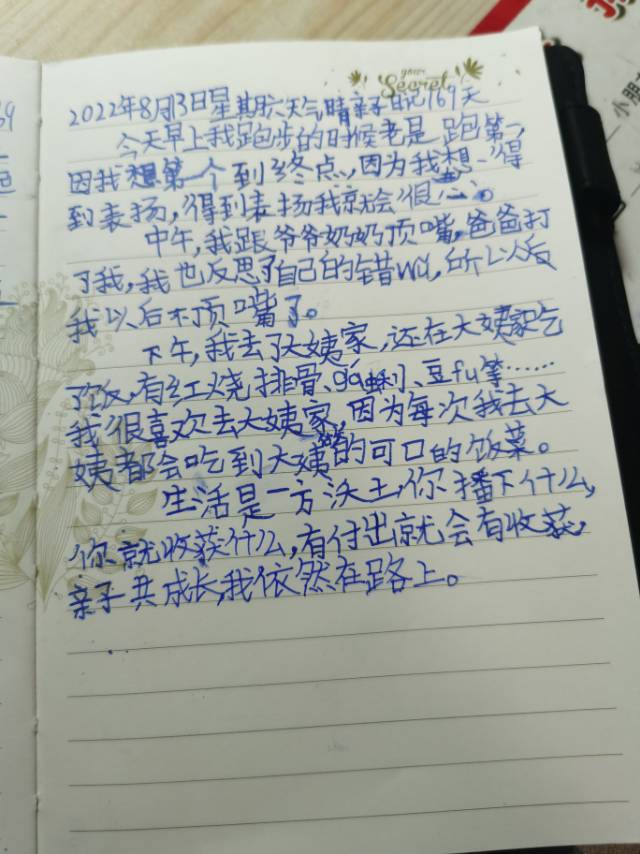 your
Secret
2022年8月13日星期六天气晴亲子日记169天
今天早上我跑步的时候老是跑第一,
因我想第一个到终点,因为我想得
到表扬,得到表扬我就会很心。
中午,我跟爷爷奶奶顶嘴,爸爸打
了我,我也反思了自己的错wù,所以以后
我以后不顶嘴了。
下午,我去了大姨家,还在大姨家吃
了饭,有红烧排骨、gá蜊、豆fu等……
我很喜欢去大姨家,因为每次我去大
姨都会吃到大姨的可口的饭菜。
生活是一方沃土,你播下什么,
你就收获什么,有付出就会有收获,
亲子共成长,我依然在路上。
小朋
69